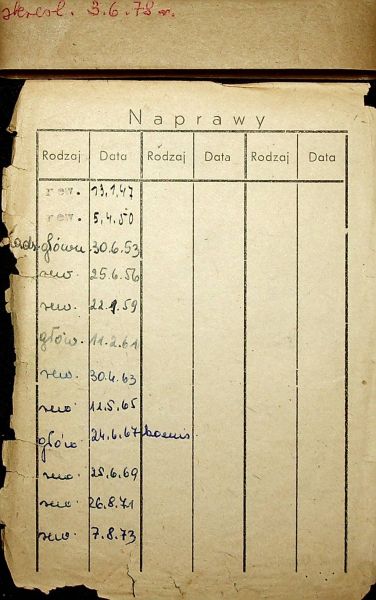 skreśl. 3.6.78 r.
Naprawy
Rodzaj Data Rodzaj Data Rodzaj Data
rew. 13.1.47
rew. 5.4.50
główna 30.6.53
rew. 25.6.56
rew. 22.9.59
głów. 11.2.61
rew. 30.4.63
rew. 11.5.65
głów. 24.6.67
rew. 25.6.69
rew. 26.8.71
rew. 7.8.73